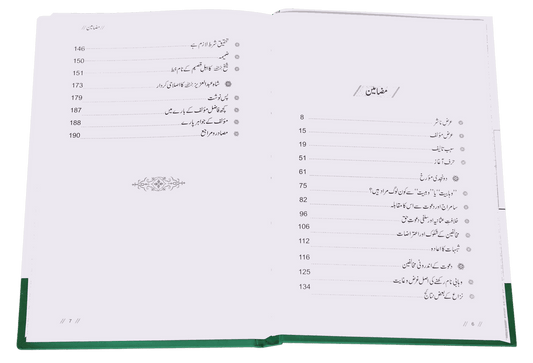 مضامین
عرض ناشر 8
عرض مؤلف 15
سبب تالیف 19
حرف آغاز 51
دو نجدی مؤرخ 61
"وہابیت" یا "وہبیت" سے کون لوگ مراد ہیں؟ 75
سامراج اور دعوت سے اس کا مقابلہ 82
خلافتِ عثمانیہ اور سلفی دعوتِ حق 96
مخالفین کے شکوک اور اعتراضات 106
شبہات کا اعادہ 112
دعوت کے اندرونی مخالفین 116
وہابی نام رکھنے کی اصل غرض و غایت 125
نزاع کے بعض نتائج 134
// 6 //
// مضامین //
تحقیق شرط لازم ہے 146
ضمیمہ 150
شیخ کا اہل قصیم کے نام خط 151
شاہ عبدالعزیز کا اصلاحی کردار 173
پس نوشت 179
کچھ فاضل مؤلف کے بارے میں 187
مؤلف کے جواہر پارے 188
مصادر و مراجع 190
// 7 //